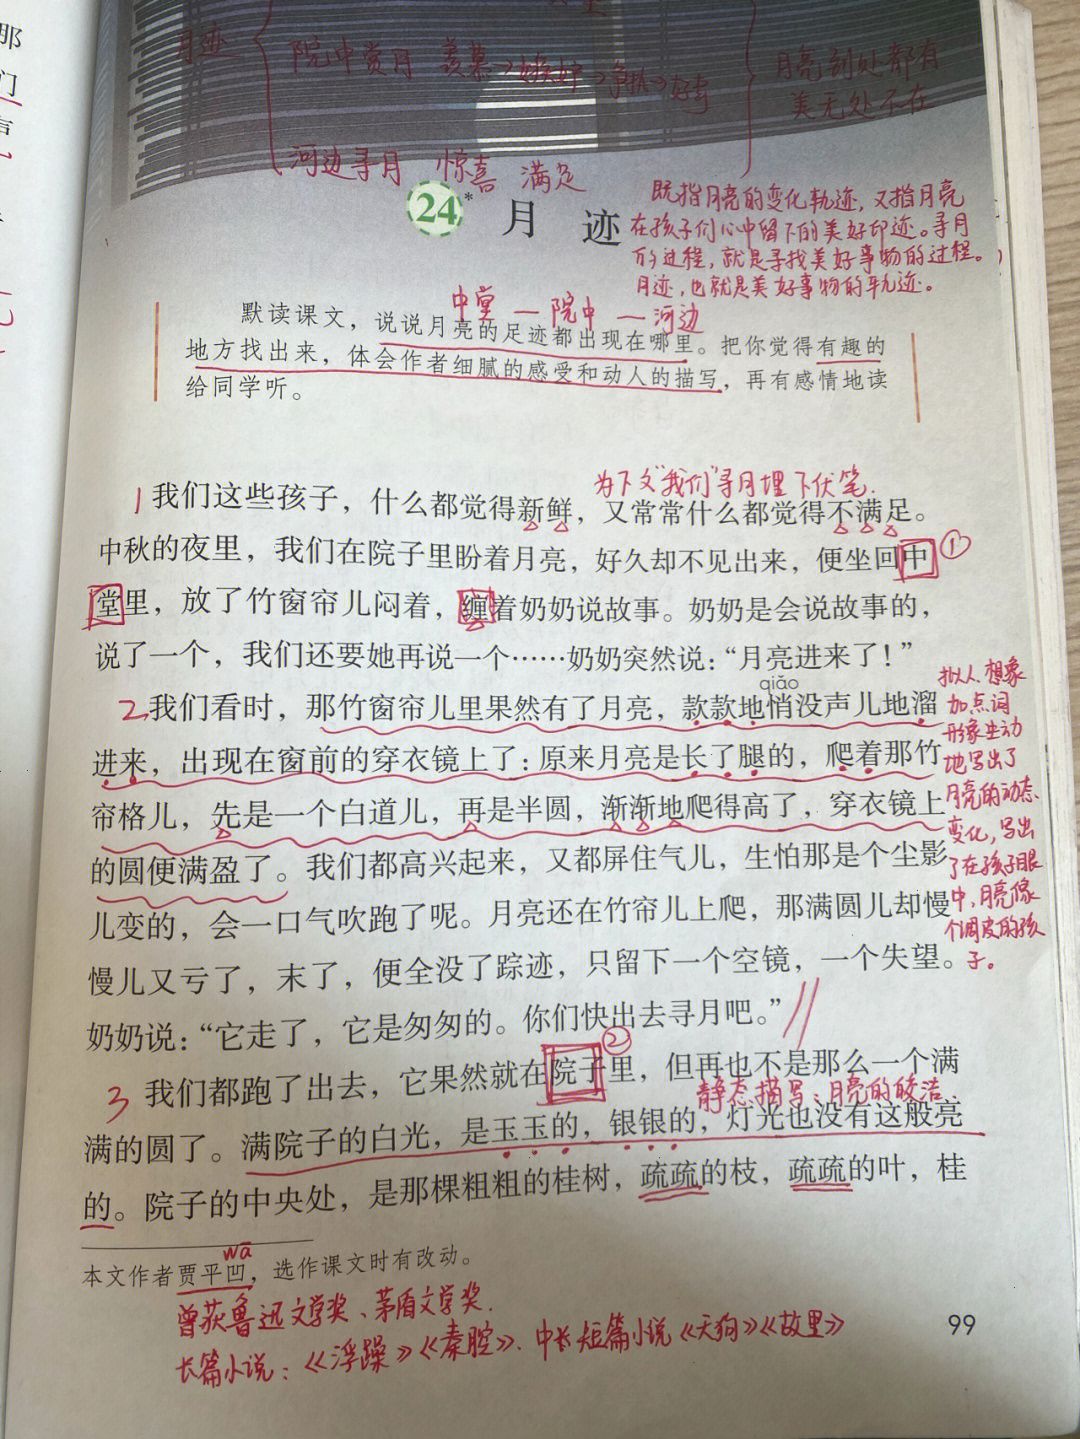 那
们
月迹
院中赏月 羡慕→
→好奇
月亮到处都有
美无处不在
河边寻月 惊喜 满足
24* 月 迹
既指月亮的变化轨迹，又指月亮
在孩子们心中留下的美好印迹。寻月
的过程，就是寻找美好事物的过程。
月迹，也就是美好事物的轨迹。
中堂—院中—河边
默读课文，说说月亮的足迹都出现在哪里。把你觉得有趣的
地方找出来，体会作者细腻的感受和动人的描写，再有感情地读
给同学听。
为下文“我们”寻月埋下伏笔.
1 我们这些孩子，什么都觉得新鲜，又常常什么都觉得不满足。
中秋的夜里，我们在院子里盼着月亮，好久却不见出来，便坐回中
①
堂里，放了竹窗帘儿闷着，缠着奶奶说故事。奶奶是会说故事的，
说了一个，我们还要她再说一个……奶奶突然说：“月亮进来了！”
qiǎo
2 我们看时，那竹窗帘儿里果然有了月亮，款款地悄没声儿地溜
进来，出现在窗前的穿衣镜上了：原来月亮是长了腿的，爬着那竹
帘格儿，先是一个白道儿，再是半圆，渐渐地爬得高了，穿衣镜上
的圆便满盈了。我们都高兴起来，又都屏住气儿，生怕那是个尘影
儿变的，会一口气吹跑了呢。月亮还在竹帘儿上爬，那满圆儿却慢
慢儿又亏了，末了，便全没了踪迹，只留下一个空镜，一个失望。
奶奶说：“它走了，它是匆匆的。你们快出去寻月吧。”
拟人、想象
加点词
形象生动
地写出了
月亮的动态
变化，写出
了在孩子眼
中，月亮像
个调皮的孩
子。
②
3 我们都跑了出去，它果然就在院子里，但再也不是那么一个满
静态描写：月亮的皎洁
满的圆了。满院子的白光，是玉玉的，银银的，灯光也没有这般亮
的。院子的中央处，是那棵粗粗的桂树，疏疏的枝，疏疏的叶，桂
wā
本文作者贾平凹，选作课文时有改动。
曾获鲁迅文学奖、茅盾文学奖.
长篇小说：《浮躁》《秦腔》、中长短篇小说《天狗》《故里》
99